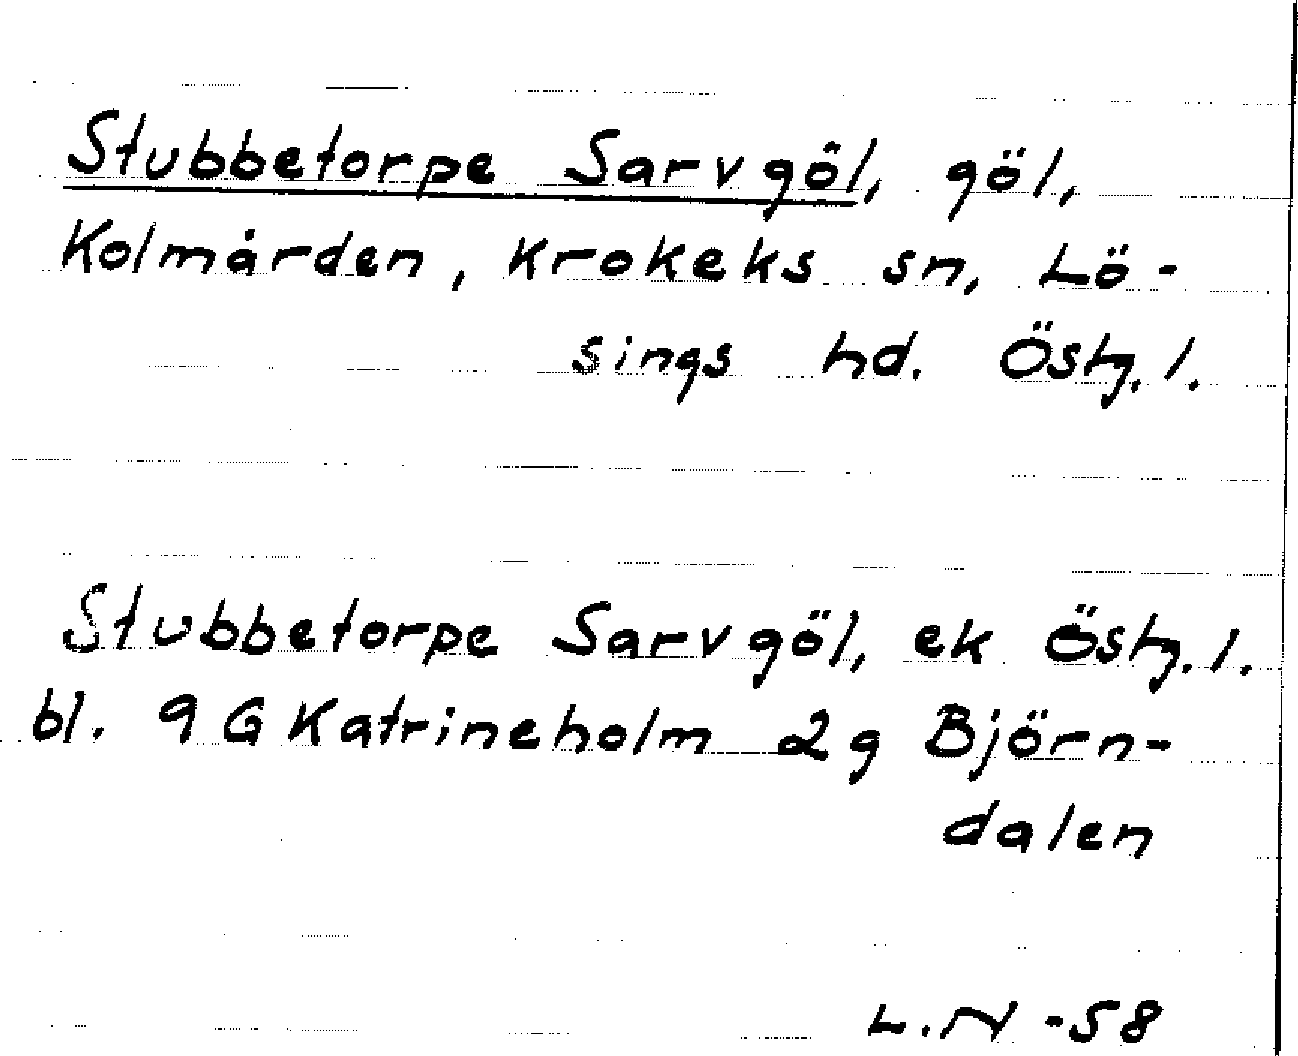 Stubbetorpe Sarvgöl, göl,
Kolmården, Krokeks sn, Lö-
sings hd. Östg. l.
Stubbetorpe Sarvgöl, ek Östg. l.
bl. 9 G Katrineholm 2g Björn-
dalen
L.N -58